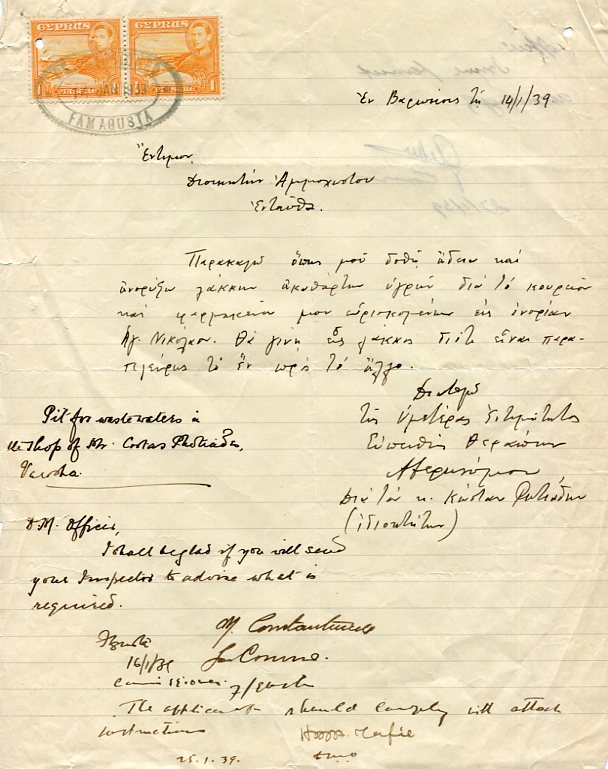 CYPRUS CYPRUS
1 PIASTRE 1 PIASTRE 1
JAN 39
FAMAGUSTA
Ἐν Βαρωσίοις τῇ 14/1/39
Ἔντιμον,
Διοικητὴν Ἀμμοχώστου
Ἐνταῦθα.
Παρακαλῶ ὅπως μοῦ δοθῇ ἄδεια καὶ
ἀνορύξω λάκκον ἀκαθάρτων ὑγρῶν διὰ τὸ κουρεῖον
καὶ φαρμακεῖον μου εὑρισκομένων εἰς ἐνορίαν
Ἁγ. Νικολάου. Θὰ γίνῃ εἷς λάκκος διότι εἶναι παρα-
πλεύρως τὸ ἓν πρὸς τὸ ἄλλο.
Διατελῶ
τῆς Ὑμετέρας Ἐντιμότητος
Εὐπειθὴς θεράπων
Διὰ τὸν κ. Κώσταν Φωτιάδην
(ἰδιοκτήτην)
Pit for waste waters in
the shop of Mr. Costas Photiades,
Varosha.
D.M. Officer,
I shall be glad if you will send
your Inspector to advise what is
required.
M. Constantinides
16/1/39
Commissioner
The applicant should comply with attach
instructions
25.1.39.